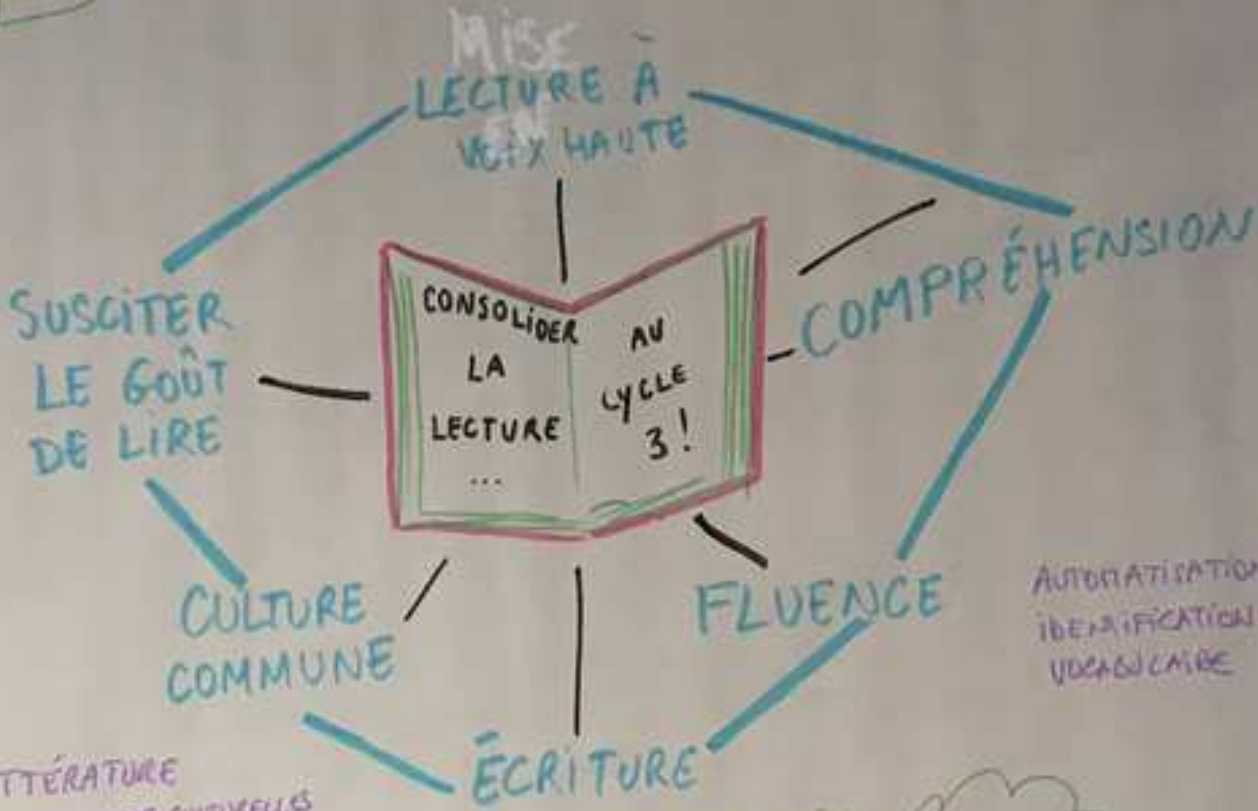 MISE
LECTURE À
EN
VOIX HAUTE
COMPRÉHENSION
SUSCITER
LE GOÛT
DE LIRE
CONSOLIDER
LA
LECTURE
...
AU
CYCLE
3!
CULTURE
COMMUNE
FLUENCE
AUTOMATISATION
IDENTIFICATION
VOCABULAIRE
ÉCRITURE
TTÉRATURE